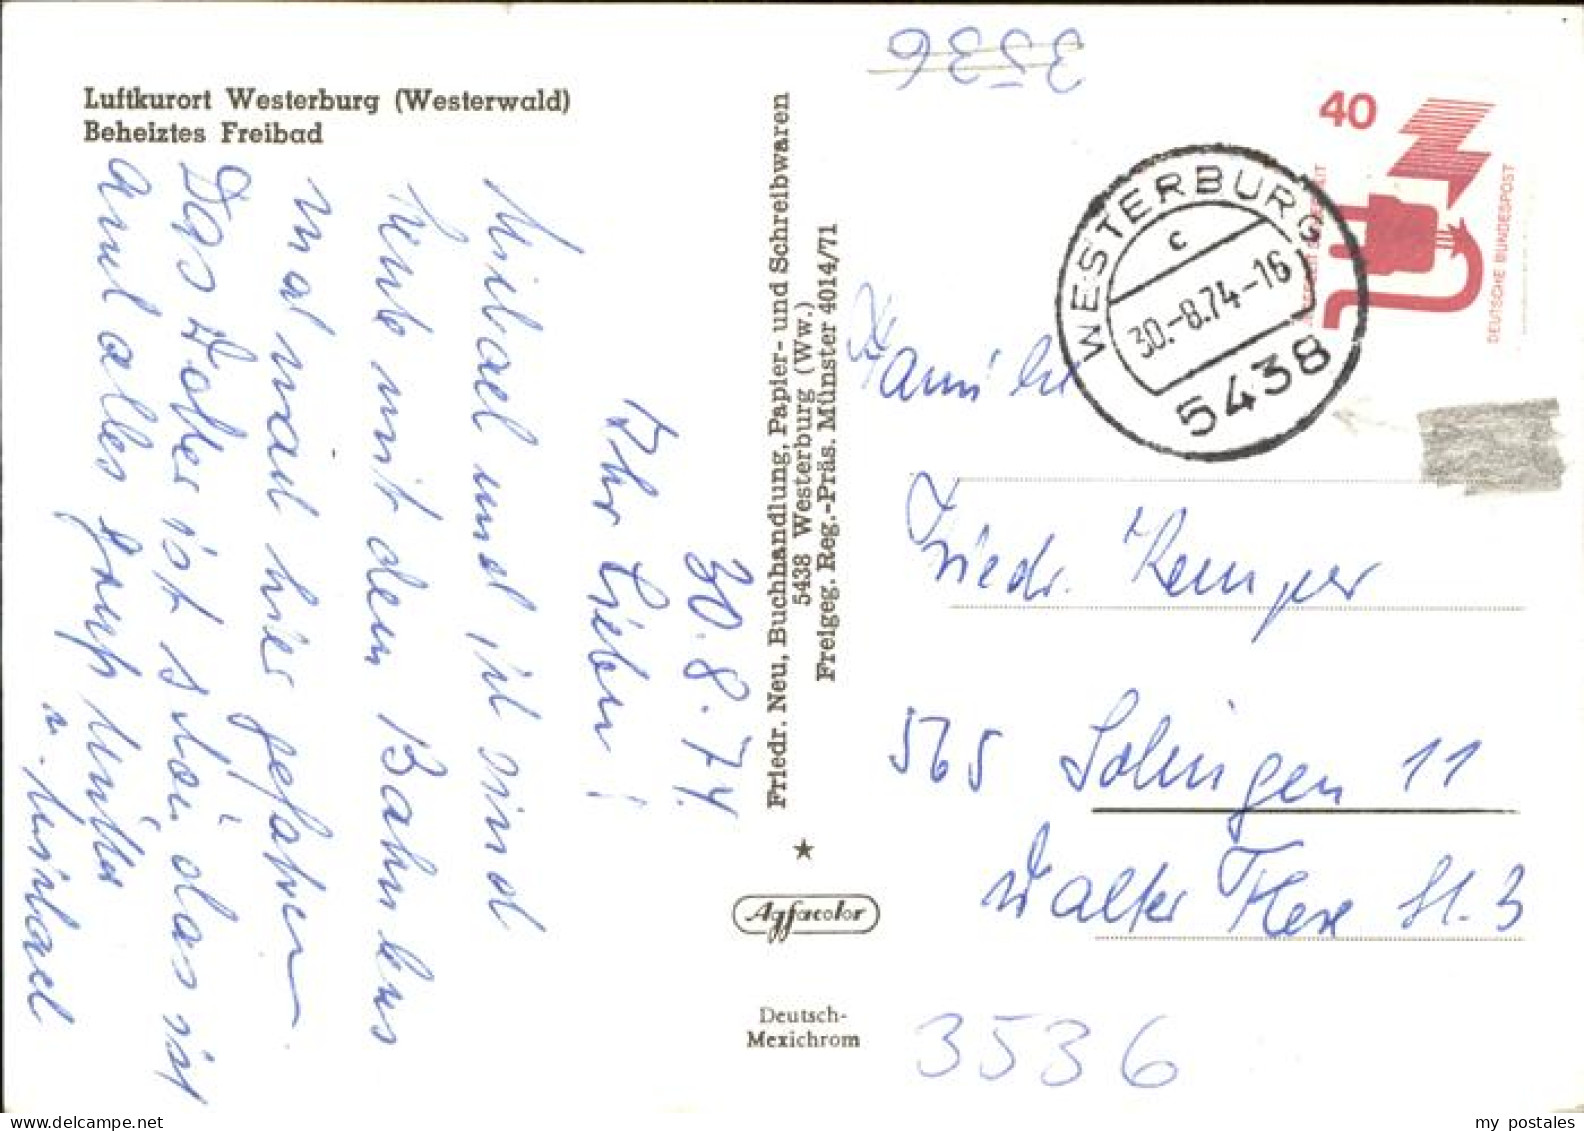 Luftkurort Westerburg (Westerwald)
Beheiztes Freibad
30.8.74.
Ihr Lieben!
Michael und ich sind
heute mit dem Bahnbus
mal nach hier gefahren.
Das Wetter ist schön das ist
auch alles
Mutter
u. Michael
Friedr. Neu, Buchhandlung, Papier- und Schreibwaren
5438 Westerburg (Ww.)
Freigeg. Reg.-Präs. Münster 4014/71
Agfacolor
Deutsch-
Mexichrom
3536
40
DEUTSCHE BUNDESPOST
WESTERBURG
c
30.-8.74-16
5438
Familie
Friedr. Kemper
565 Solingen 11
Walter Flex St. 3
3536
my postales